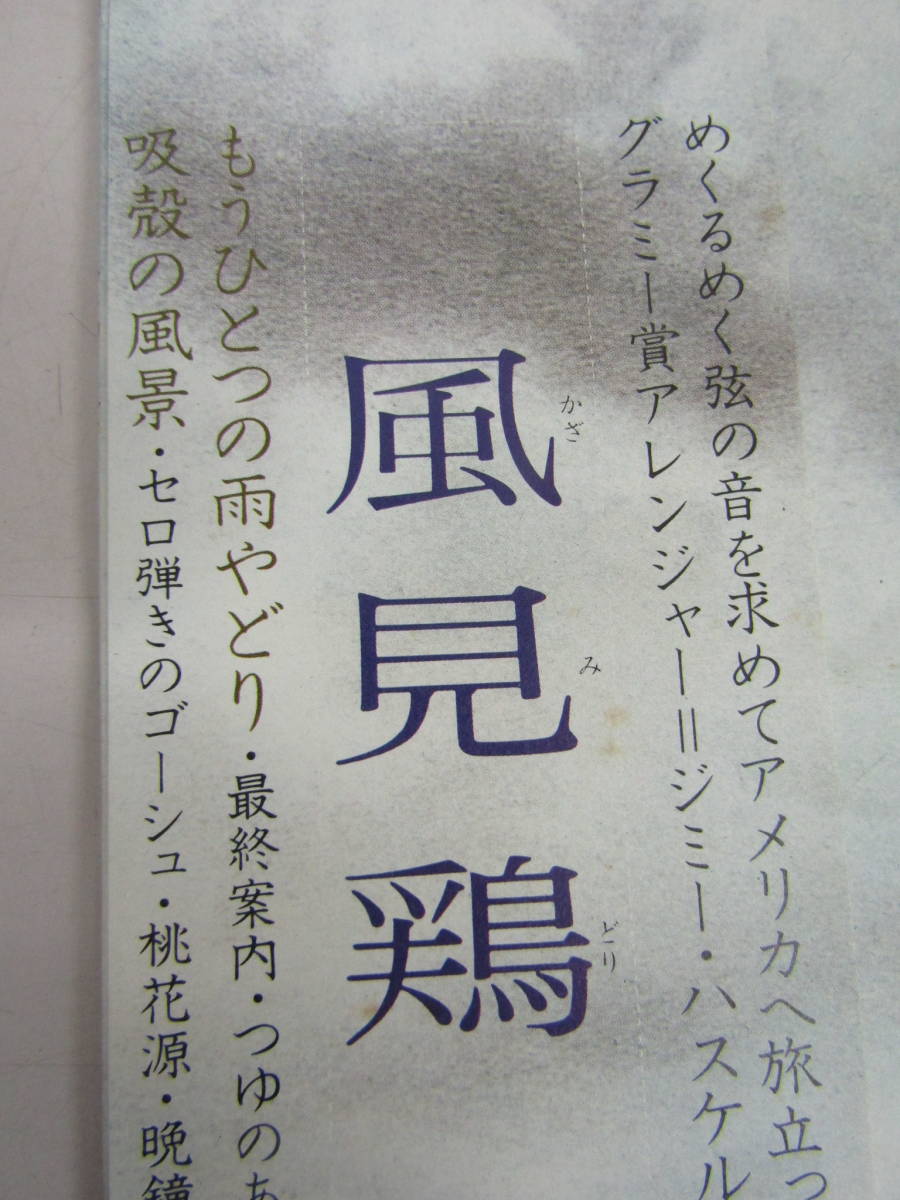 めくるめく弦の音を求めてアメリカへ旅立っ
グラミー賞アレンジャー=ジミー・ハスケル
風見鶏
かざみどり
もうひとつの雨やどり・最終案内・つゆのあ
吸殻の風景・セロ弾きのゴーシュ・桃花源・晩鐘